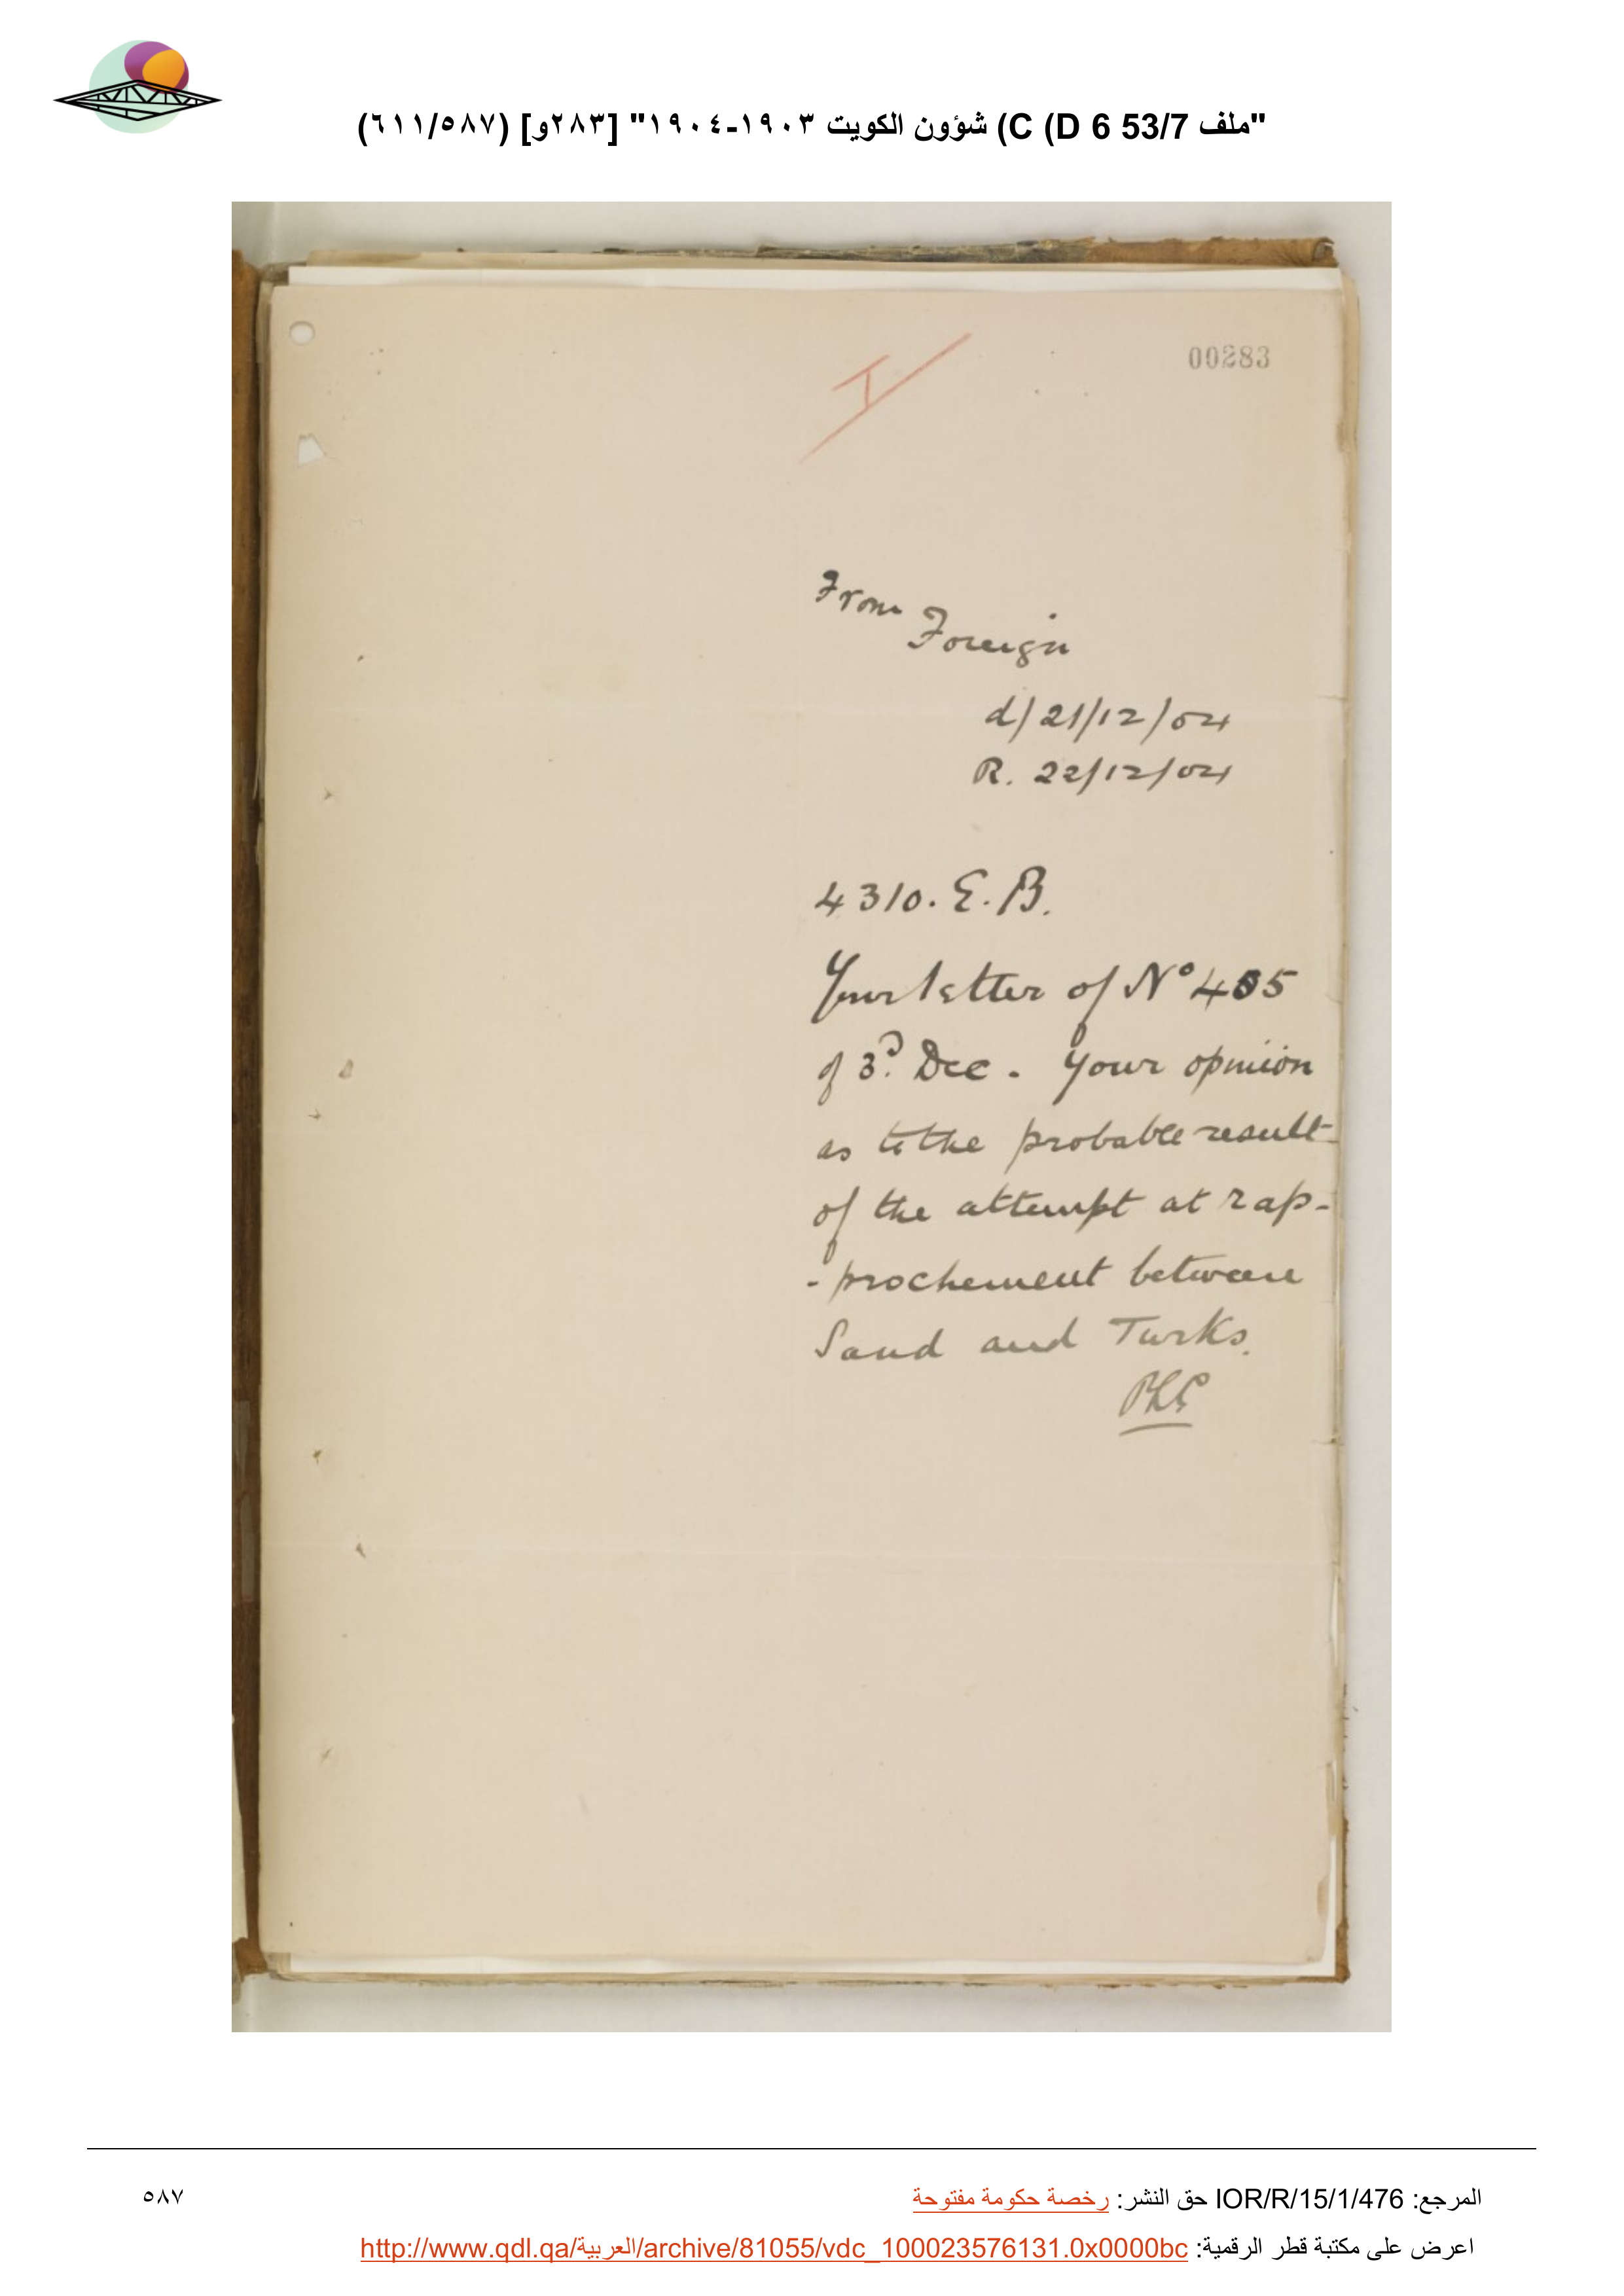 "ملف 53/7 D 6) C) شؤون الكويت ١٩٠٣-١٩٠٤" [٢٨٣و] (٥٨٧/٦١١)
00283
I
From
Foreign
d/21/12/04
R. 22/12/04
4310. E. B.
Your letter of Nº 405
of 3d. Dec. Your opinion
as to the probable result
of the attempt at rap-
-prochement between
Saud and Turks.
المرجع: IOR/R/15/1/476 حق النشر: رخصة حكومة مفتوحة
٥٨٧
اعرض على مكتبة قطر الرقمية: http://www.qdl.qa/العربية/archive/81055/vdc_100023576131.0x0000bc